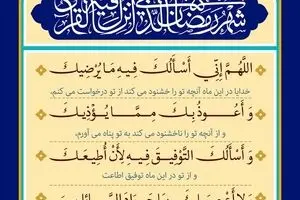 شهر رمضان الذي أنزل فيه القرآن
اللَّهُمَّ إِنِّي أَسْأَلُكَ فِيهِ مَا يُرْضِيكَ
خدایا در این ماه آنچه تو را خشنود می کند از تو درخواست می کنم،
وَ أَعُوذُ بِكَ مِمَّا يُؤْذِيكَ
و از آنچه تو را ناخشنود می کند به تو پناه می آورم،
وَ أَسْأَلُكَ التَّوْفِيقَ فِيهِ لِأَنْ أُطِيعَكَ
و از تو در این ماه توفیق اطاعت